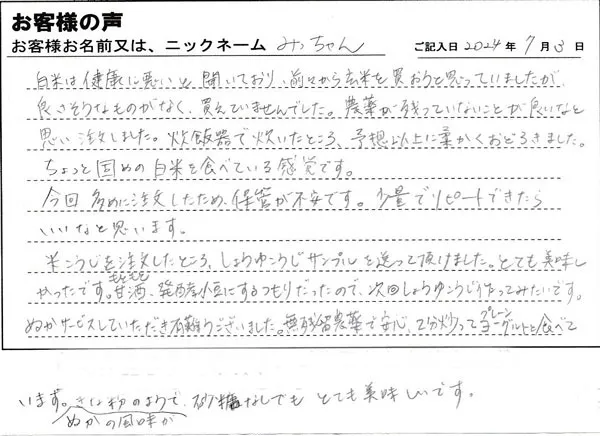 お客様の声
お客様お名前又は、ニックネーム みっちゃん ご記入日 2024年 7月 3日
白米は健康に悪いと聞いており、前々から玄米を買おうと思っていましたが、
良さそうなものがなく、買えていませんでした。農薬が残っていないことが良いなと
思い注文しました。炊飯器で炊いたところ、予想以上に柔かくおどろきました。
ちょっと固めの白米を食べている感覚です。
今回多めに注文したため、保管が不安です。少量でリピートできたら
いいなと思います。
米こうじを注文したところ、しょうゆこうじサンプルを送って頂けました。とても美味し
かったです。もともと甘酒、発酵小豆にするつもりだったので、次回しょうゆこうじ作ってみたいです。
ぬかサービスしていただき有難うございました。無残留農薬で安心、2分炒ってプレーンヨーグルトと食べて
います。きな粉のようで、ぬかの風味が砂糖なしでもとても美味しいです。